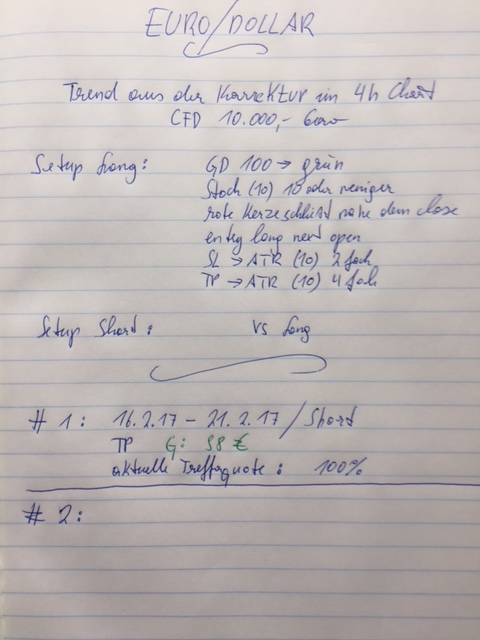 EURO/DOLLAR
Trend aus der Korrektur im 4h Chart
CFD 10.000,- Euro
Setup Long: GD 100 → grün
Stoch (10) 10 oder weniger
rote Kerze schließt nahe dem close
entry long next open
SL → ATR (10) 2 fach
TP → ATR (10) 4 fach
Setup Short: vs Long
# 1: 16.2.17 - 21.2.17 / Short
TP G: 98 €
aktuelle Trefferquote: 100%
# 2: